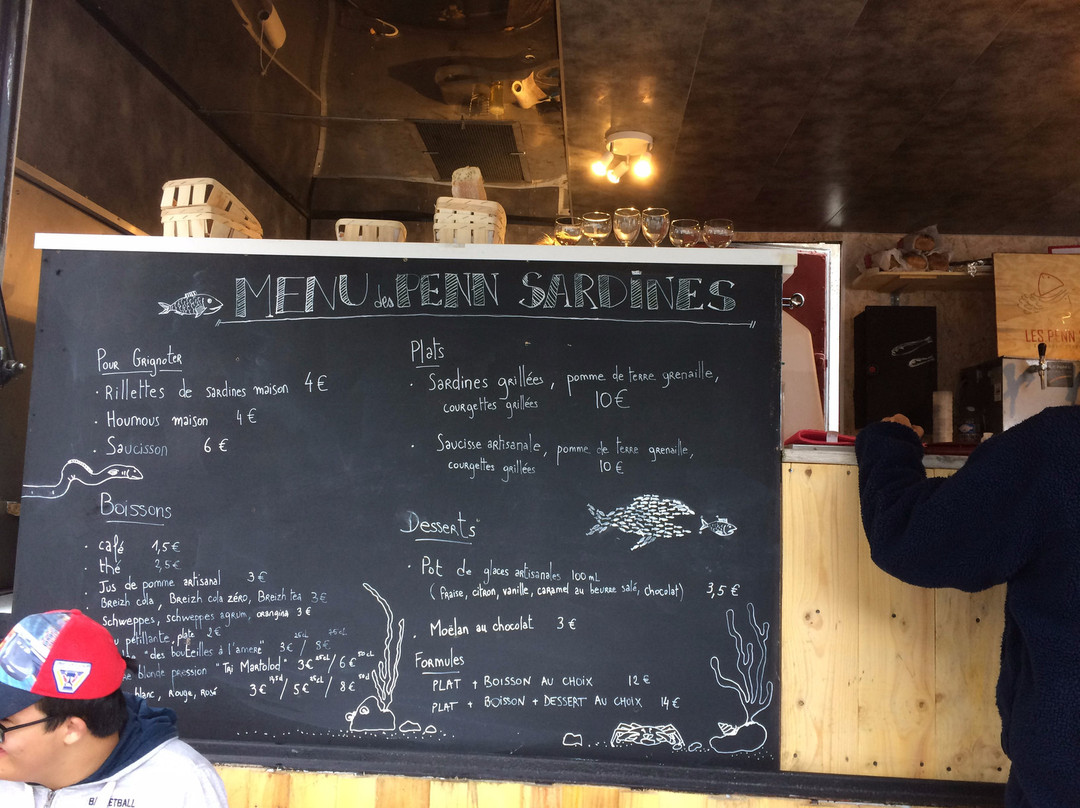 MENU des PENN SARDINES
Pour Grignoter
• Rillettes de sardines maison 4€
• Houmous maison 4€
• Saucisson 6€
Boissons
• café 1,5€
• thé 2,5€
• Jus de pomme artisanal 3€
• Breizh cola, Breizh cola zéro, Breizh tea 3€
Schweppes, schweppes agrum, orangina 3€
pétillante, plate 2€
"des bouteilles à l'amère" 3€ 25cl / 8€ 75cl
blonde pression "Tri Martolod" 3€ 25cl / 6€ 50cl
blanc, rouge, rosé 3€ / 5€ 25cl / 8€ 50cl
Plats
• Sardines grillées, pomme de terre grenaille,
courgettes grillées 10€
• Saucisse artisanale, pomme de terre grenaille,
courgettes grillées 10€
Desserts
• Pot de glaces artisanales 100mL
(fraise, citron, vanille, caramel au beurre salé, chocolat) 3,5€
• Moëlan au chocolat 3€
Formules
PLAT + BOISSON AU CHOIX 12€
PLAT + BOISSON + DESSERT AU CHOIX 14€
LES PENN